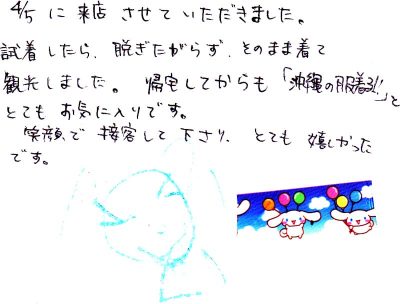 4/5 に 来店 させて いただきました。
試着したら、脱ぎたがらず、そのまま着て
観光しました。帰宅してからも「沖縄の服着る!!」と
とても お気に入りです。
笑顔で 接客して 下さり、とても 嬉しかった
です。